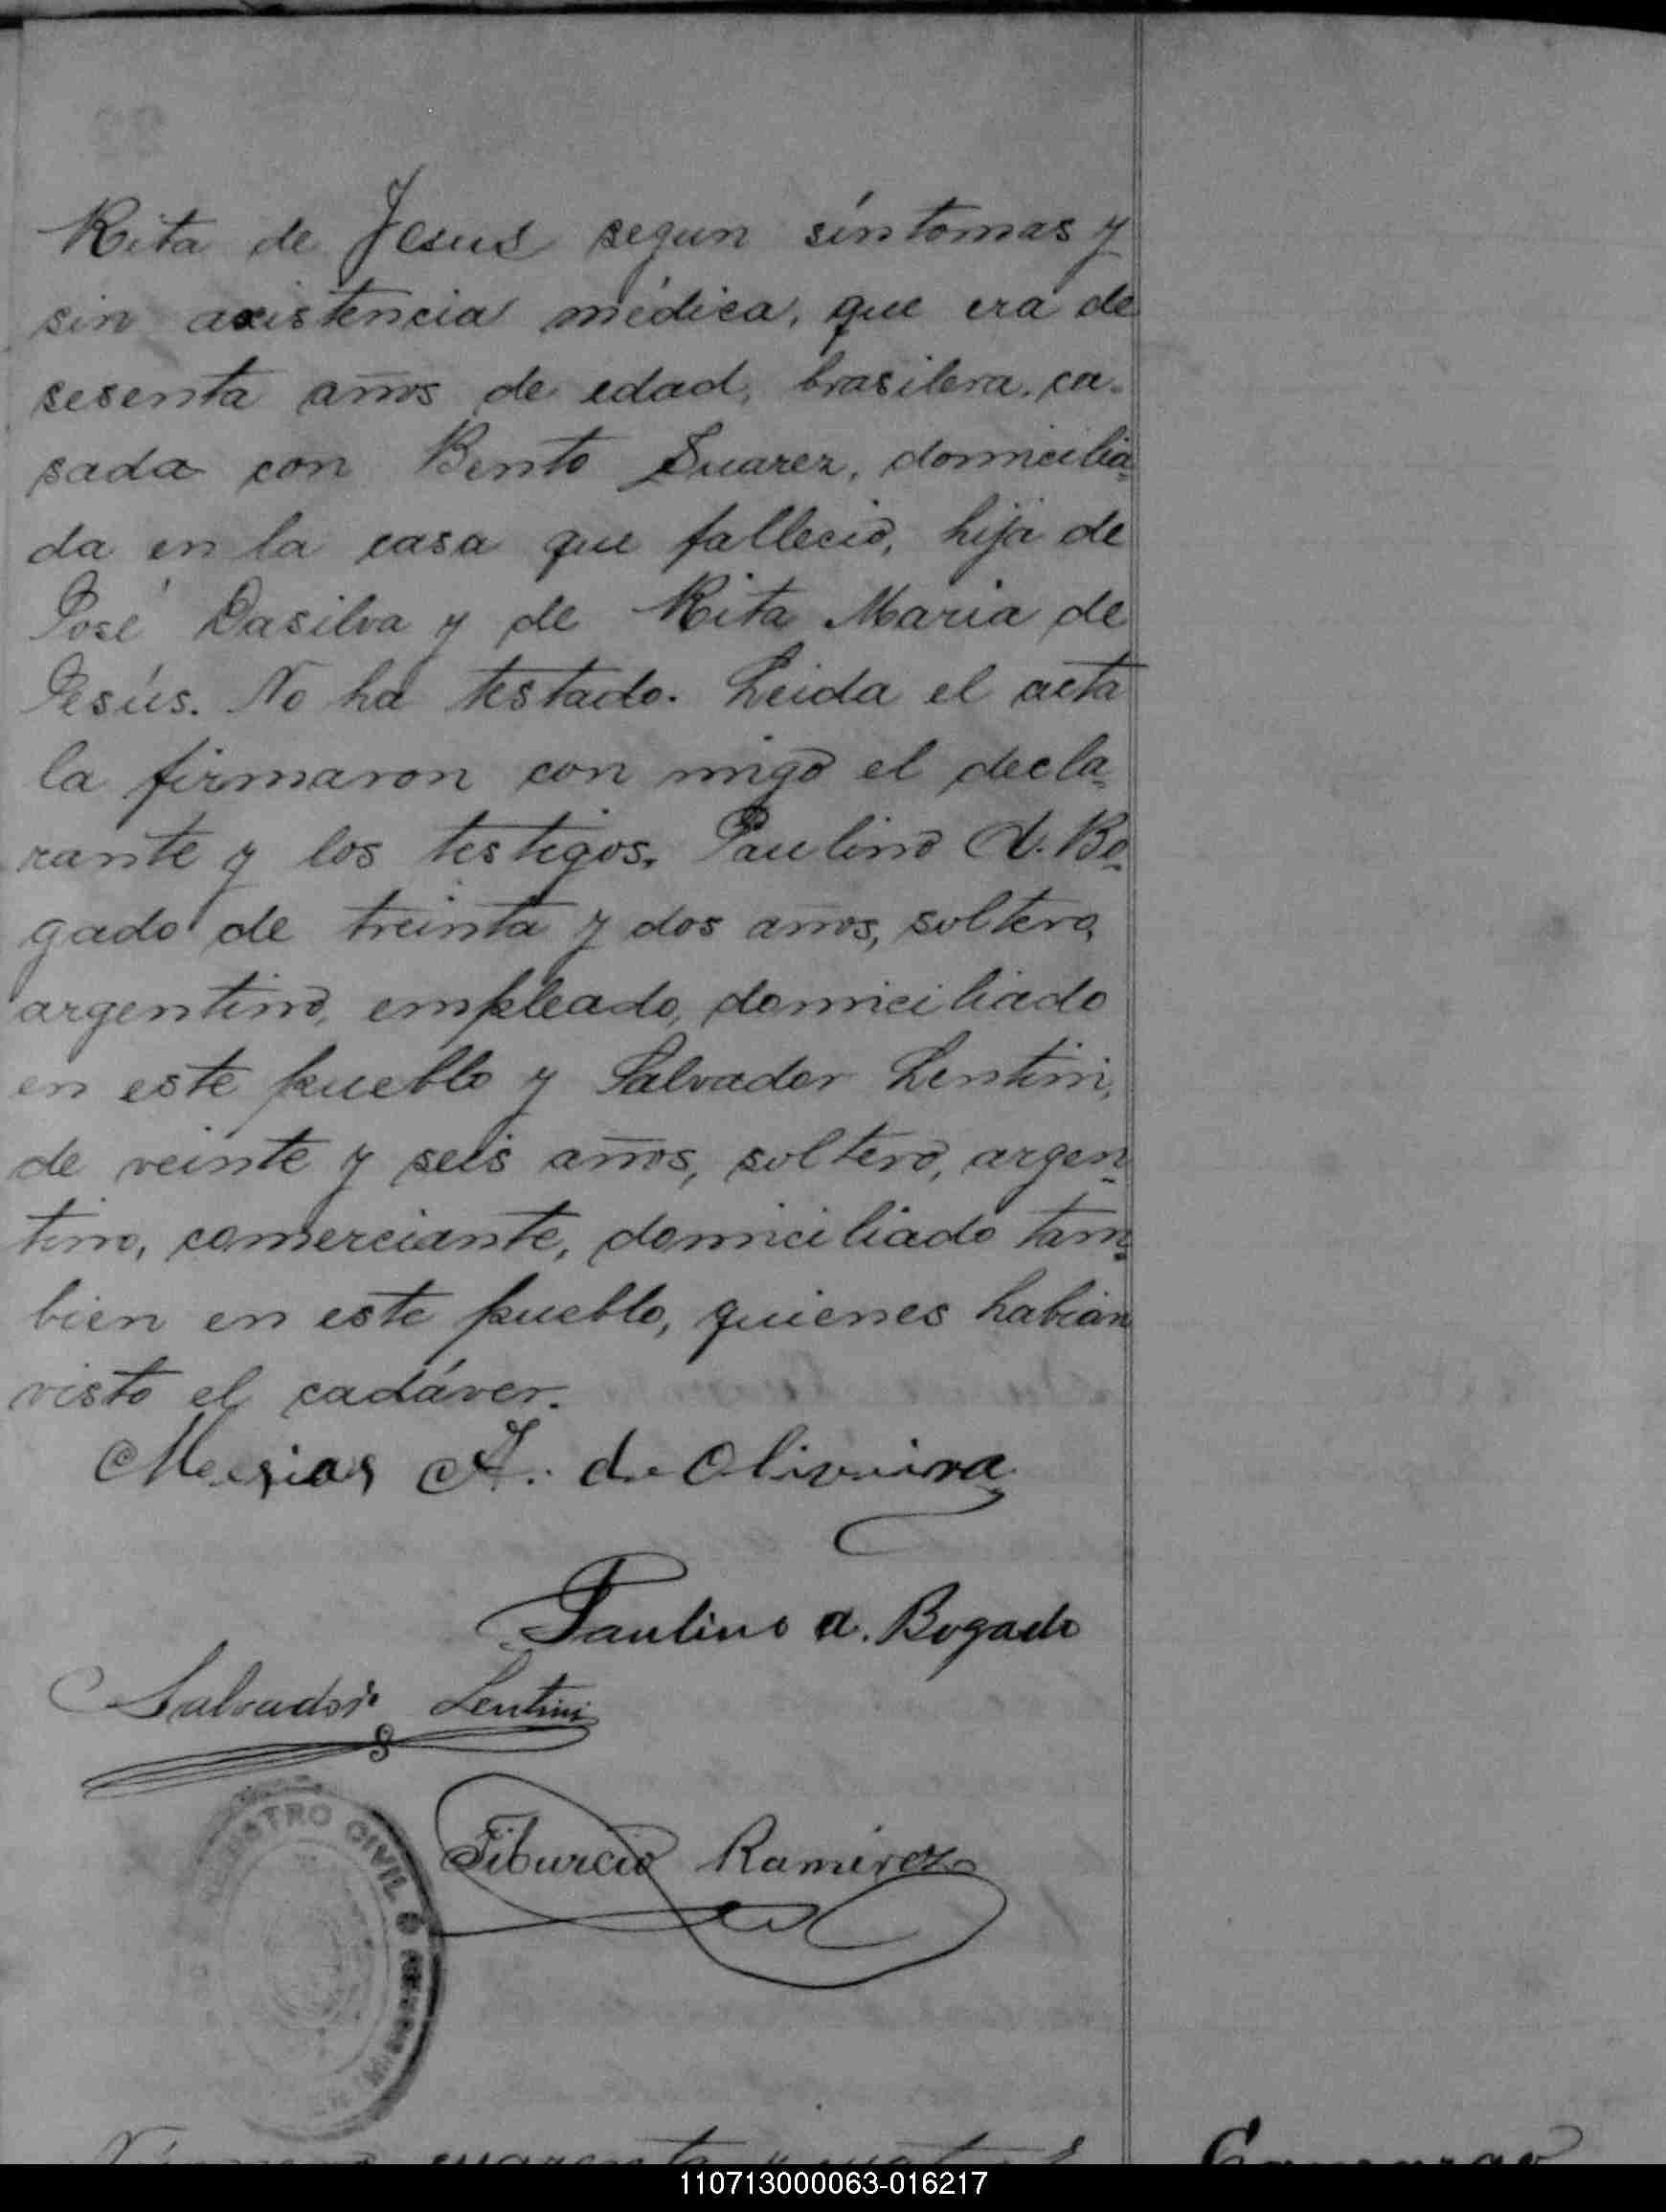 Rita de Jesus segun síntomas y
sin axistencia médica, que era de
sesenta años de edad, brasilera, ca-
sada con Bento Suarez, domicilia-
da en la casa que falleció, hija de
José Dasilva y de Rita Maria de
Jesús. No ha testado. Leida el acta
la firmaron con migo el decla-
rante y los testigos, Paulino A. Bo-
gado de treinta y dos años, soltero,
argentino, empleado, domiciliado
en este pueblo y Salvador Lentini,
de veinte y seis años, soltero, argen-
tino, comerciante, domiciliado tam-
bien en este pueblo, quienes habian
visto el cadáver.
Mesias A. de Oliveira
Paulino A. Bogado
Salvador Lentini
REGISTRO CIVIL
Tiburcio Ramirez
Número cuarenta y
Camargo
110713000063-016217